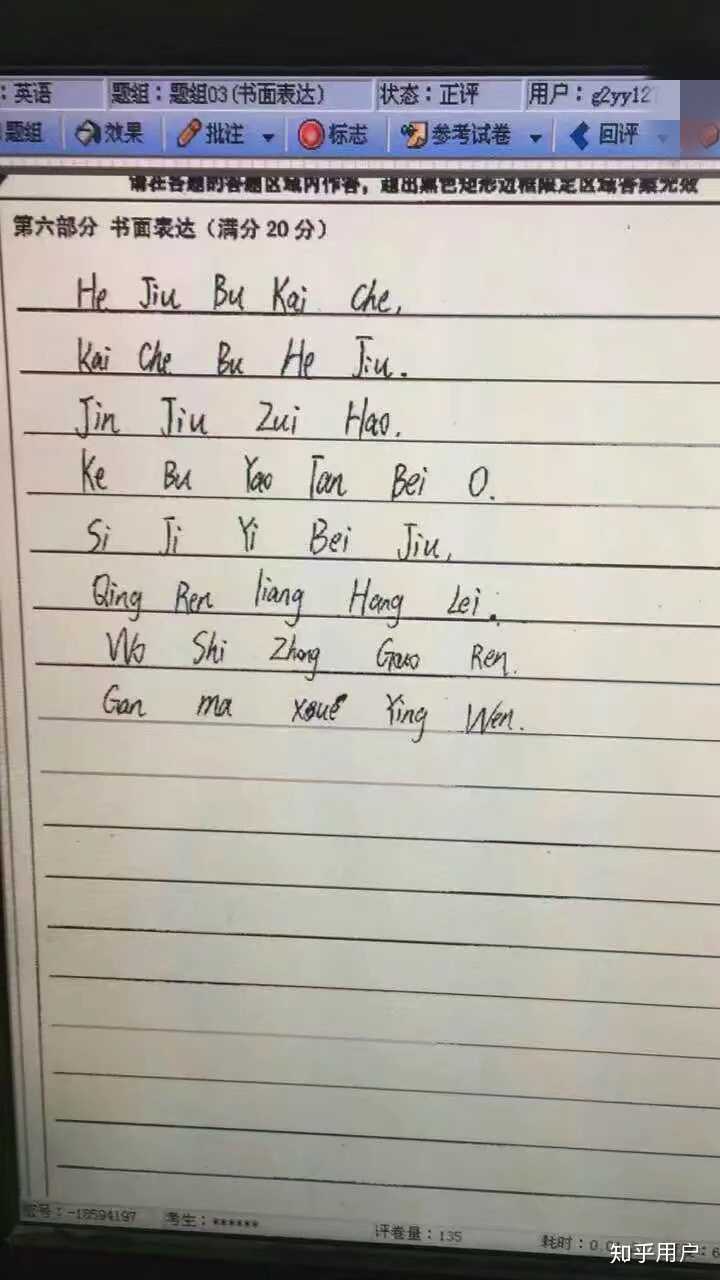 ：英语 题组：题组03(书面表达) 状态：正评 用户：g2yy12
题组 效果 批注 标志 参考试卷 回评
请在各题的答题区域内作答，超出黑色矩形边框限定区域答案无效
第六部分 书面表达（满分20分）
He Jiu Bu Kai Che,
Kai Che Bu He Jiu.
Jin Jiu Zui Hao.
Ke Bu Yao Tan Bei O.
Si Ji Yi Bei Jiu,
Qing Ren liang Hang Lei.
Wo Shi Zhong Guo Ren.
Gan ma xue Ying Wen.
号：-18594197 考生：****** 评卷量：135 耗时：0.0
知乎用户